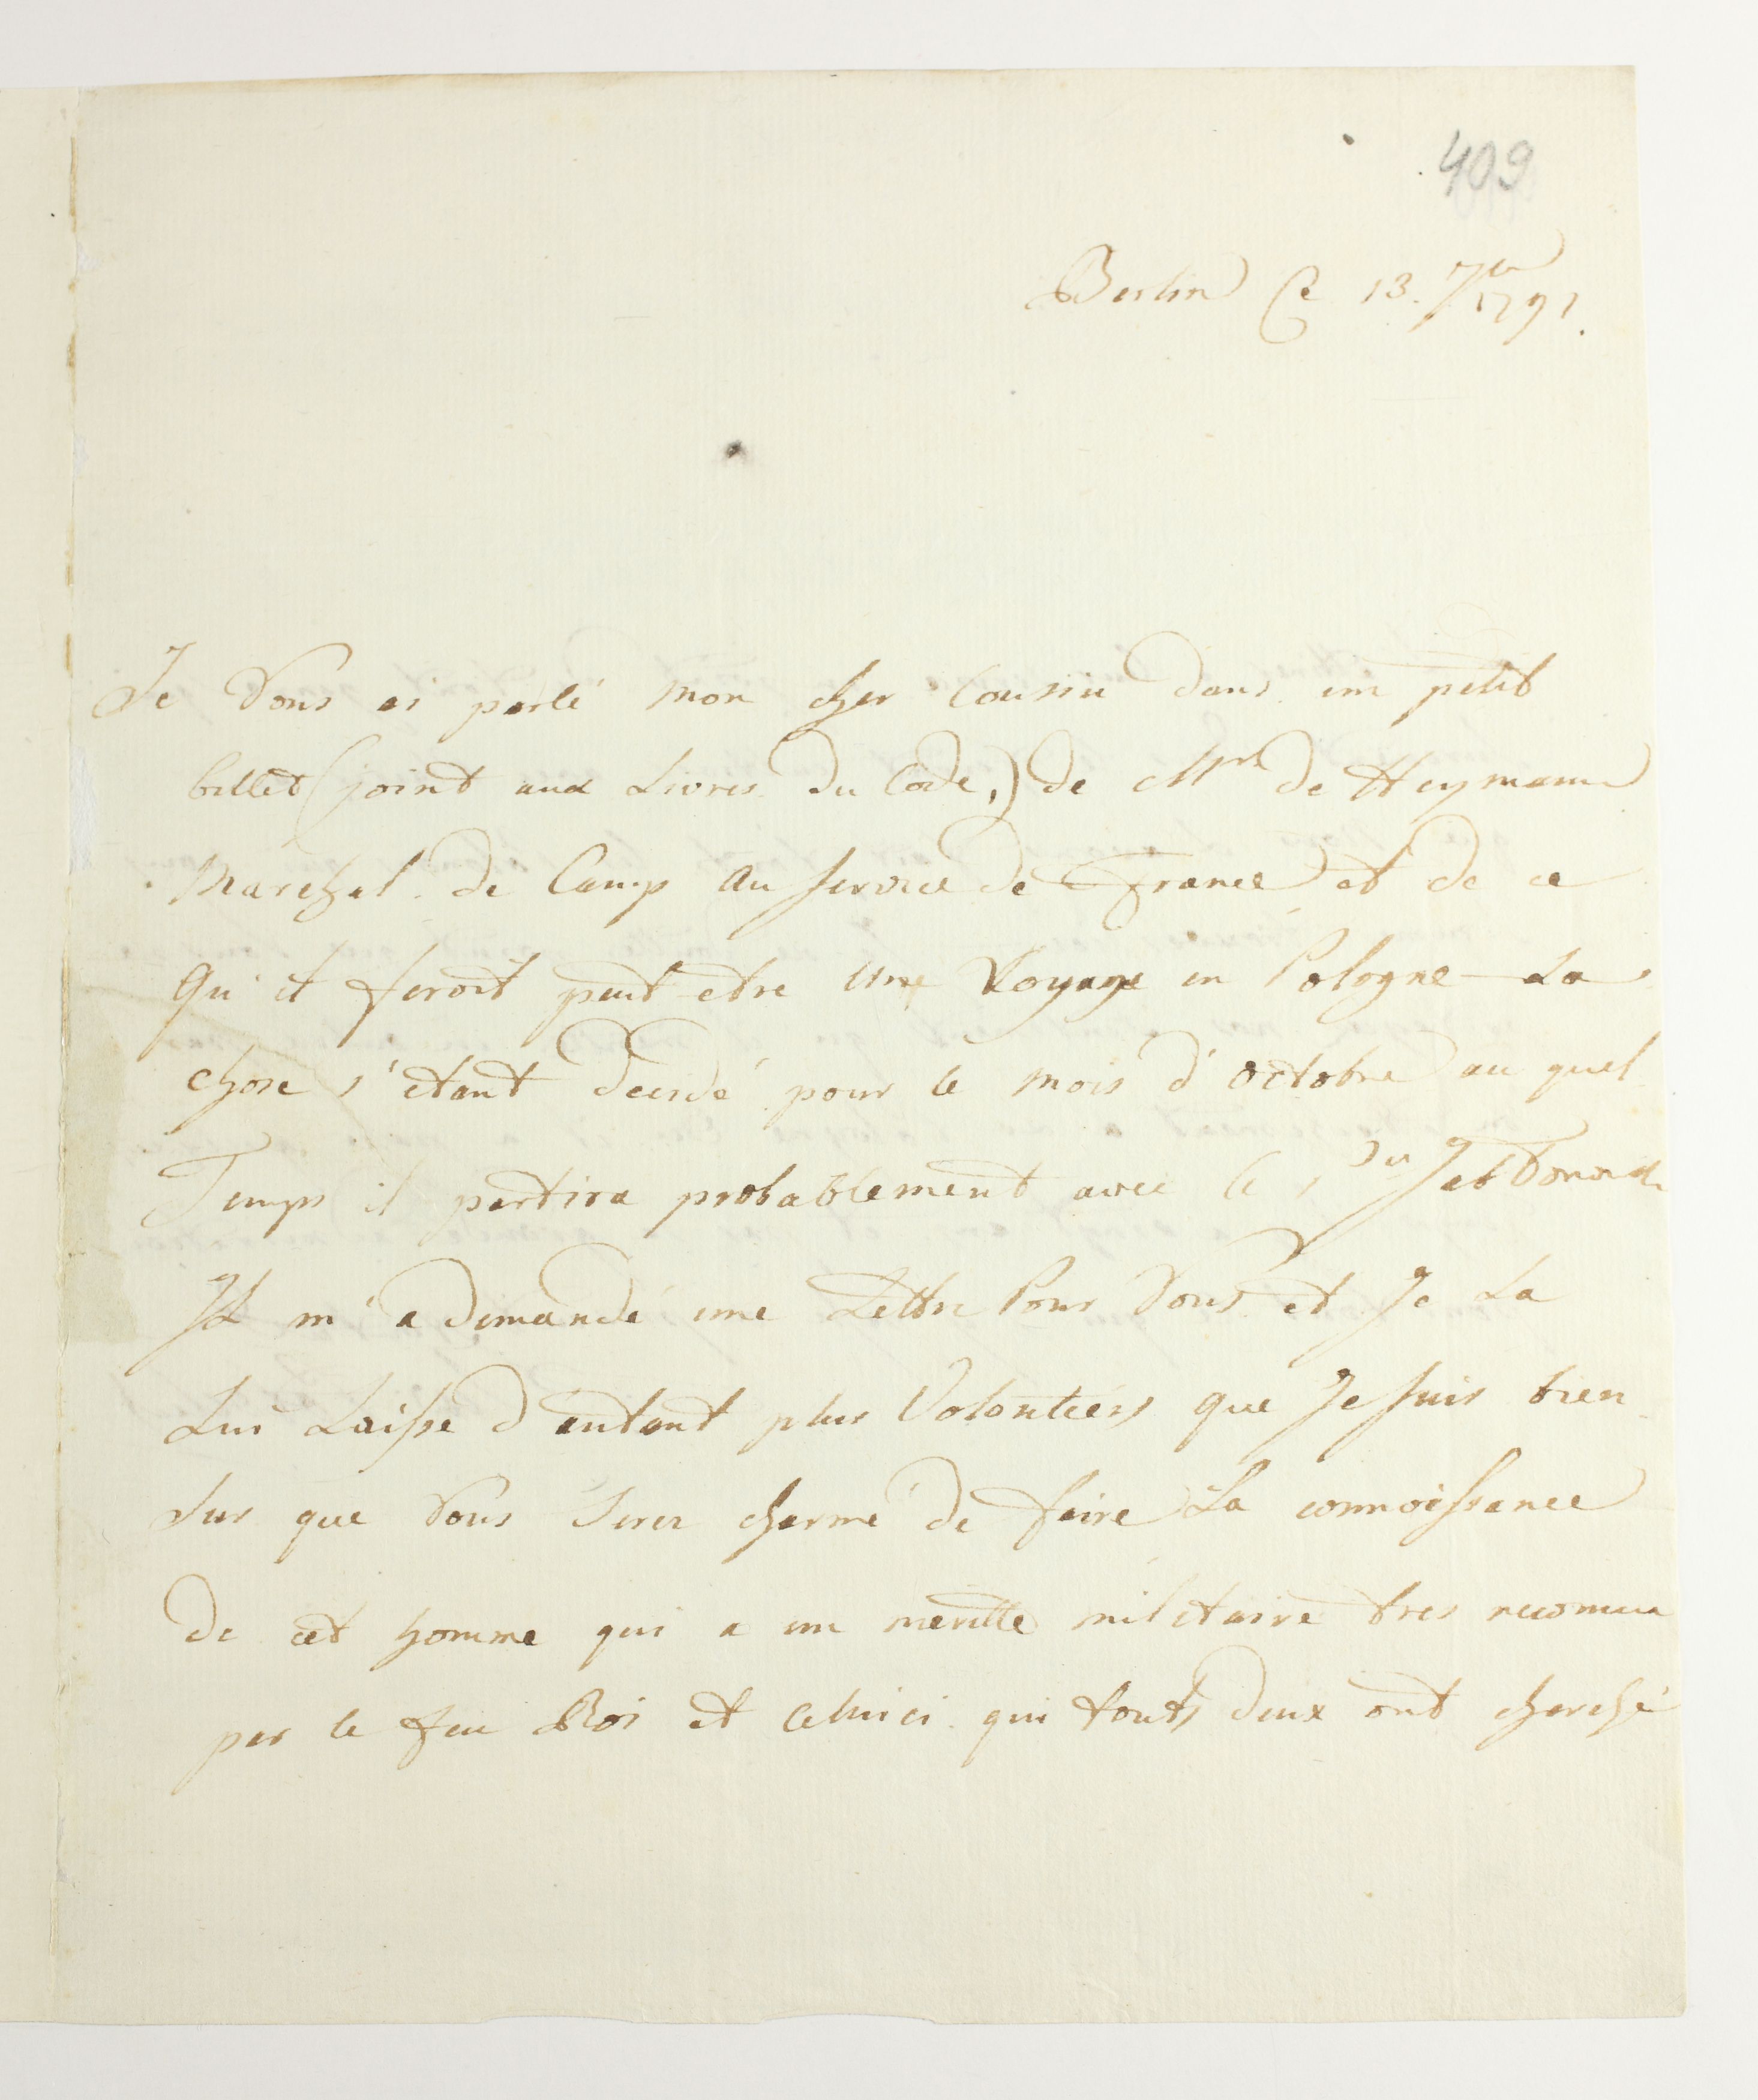 409
Berlin Ce 13. 7br 1791.
Je Vous ai parlé mon cher Cousin dans un petit
billet (joint aux Livres du Code,) de Mr de Heymann
Marechal de Camp au service de France et de ce
Qu'il feroit peut etre une Voyage en Pologne La
chose s'etant decidé pour le mois d'octobre au quel
Temps il partira probablement avec le
Il m'a demandé une Lettre Pour Vous et Je La
Lui Laisse d'autant plus Volontiers que Je suis bien
Sur que Vous Serez charmé de faire La connoissance
de cet homme qui a un meritte militaire tres reconnu
par le feu Roi et Celuici qui touts deux ont cherché